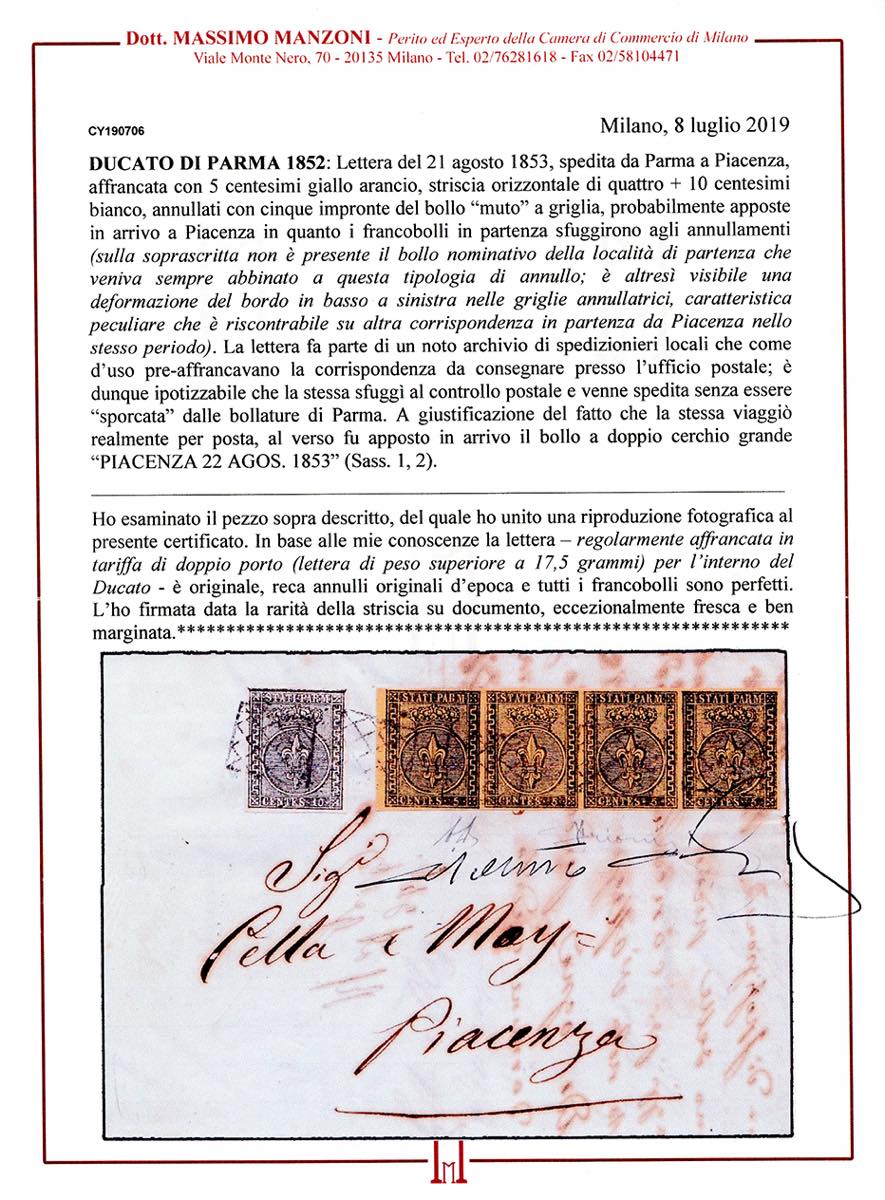 Dott. MASSIMO MANZONI - Perito ed Esperto della Camera di Commercio di Milano
Viale Monte Nero, 70 - 20135 Milano - Tel. 02/76281618 - Fax 02/58104471
CY190706
Milano, 8 luglio 2019
DUCATO DI PARMA 1852: Lettera del 21 agosto 1853, spedita da Parma a Piacenza,
affrancata con 5 centesimi giallo arancio, striscia orizzontale di quattro + 10 centesimi
bianco, annullati con cinque impronte del bollo “muto” a griglia, probabilmente apposte
in arrivo a Piacenza in quanto i francobolli in partenza sfuggirono agli annullamenti
(sulla soprascritta non è presente il bollo nominativo della località di partenza che
veniva sempre abbinato a questa tipologia di annullo; è altresì visibile una
deformazione del bordo in basso a sinistra nelle griglie annullatrici, caratteristica
peculiare che è riscontrabile su altra corrispondenza in partenza da Piacenza nello
stesso periodo). La lettera fa parte di un noto archivio di spedizionieri locali che come
d’uso pre-affrancavano la corrispondenza da consegnare presso l’ufficio postale; è
dunque ipotizzabile che la stessa sfuggì al controllo postale e venne spedita senza essere
“sporcata” dalle bollature di Parma. A giustificazione del fatto che la stessa viaggiò
realmente per posta, al verso fu apposto in arrivo il bollo a doppio cerchio grande
“PIACENZA 22 AGOS. 1853” (Sass. 1, 2).
Ho esaminato il pezzo sopra descritto, del quale ho unito una riproduzione fotografica al
presente certificato. In base alle mie conoscenze la lettera – regolarmente affrancata in
tariffa di doppio porto (lettera di peso superiore a 17,5 grammi) per l’interno del
Ducato - è originale, reca annulli originali d’epoca e tutti i francobolli sono perfetti.
L’ho firmata data la rarità della striscia su documento, eccezionalmente fresca e ben
marginata.**************************************************************
STATI PARM STATI PARM STATI PARM STATI PARM STATI PARM
CENTES 10 CENTES 5 CENTES 5 CENTES 5 CENTES 5
Sigi
Cella e May=
Piacenza
M